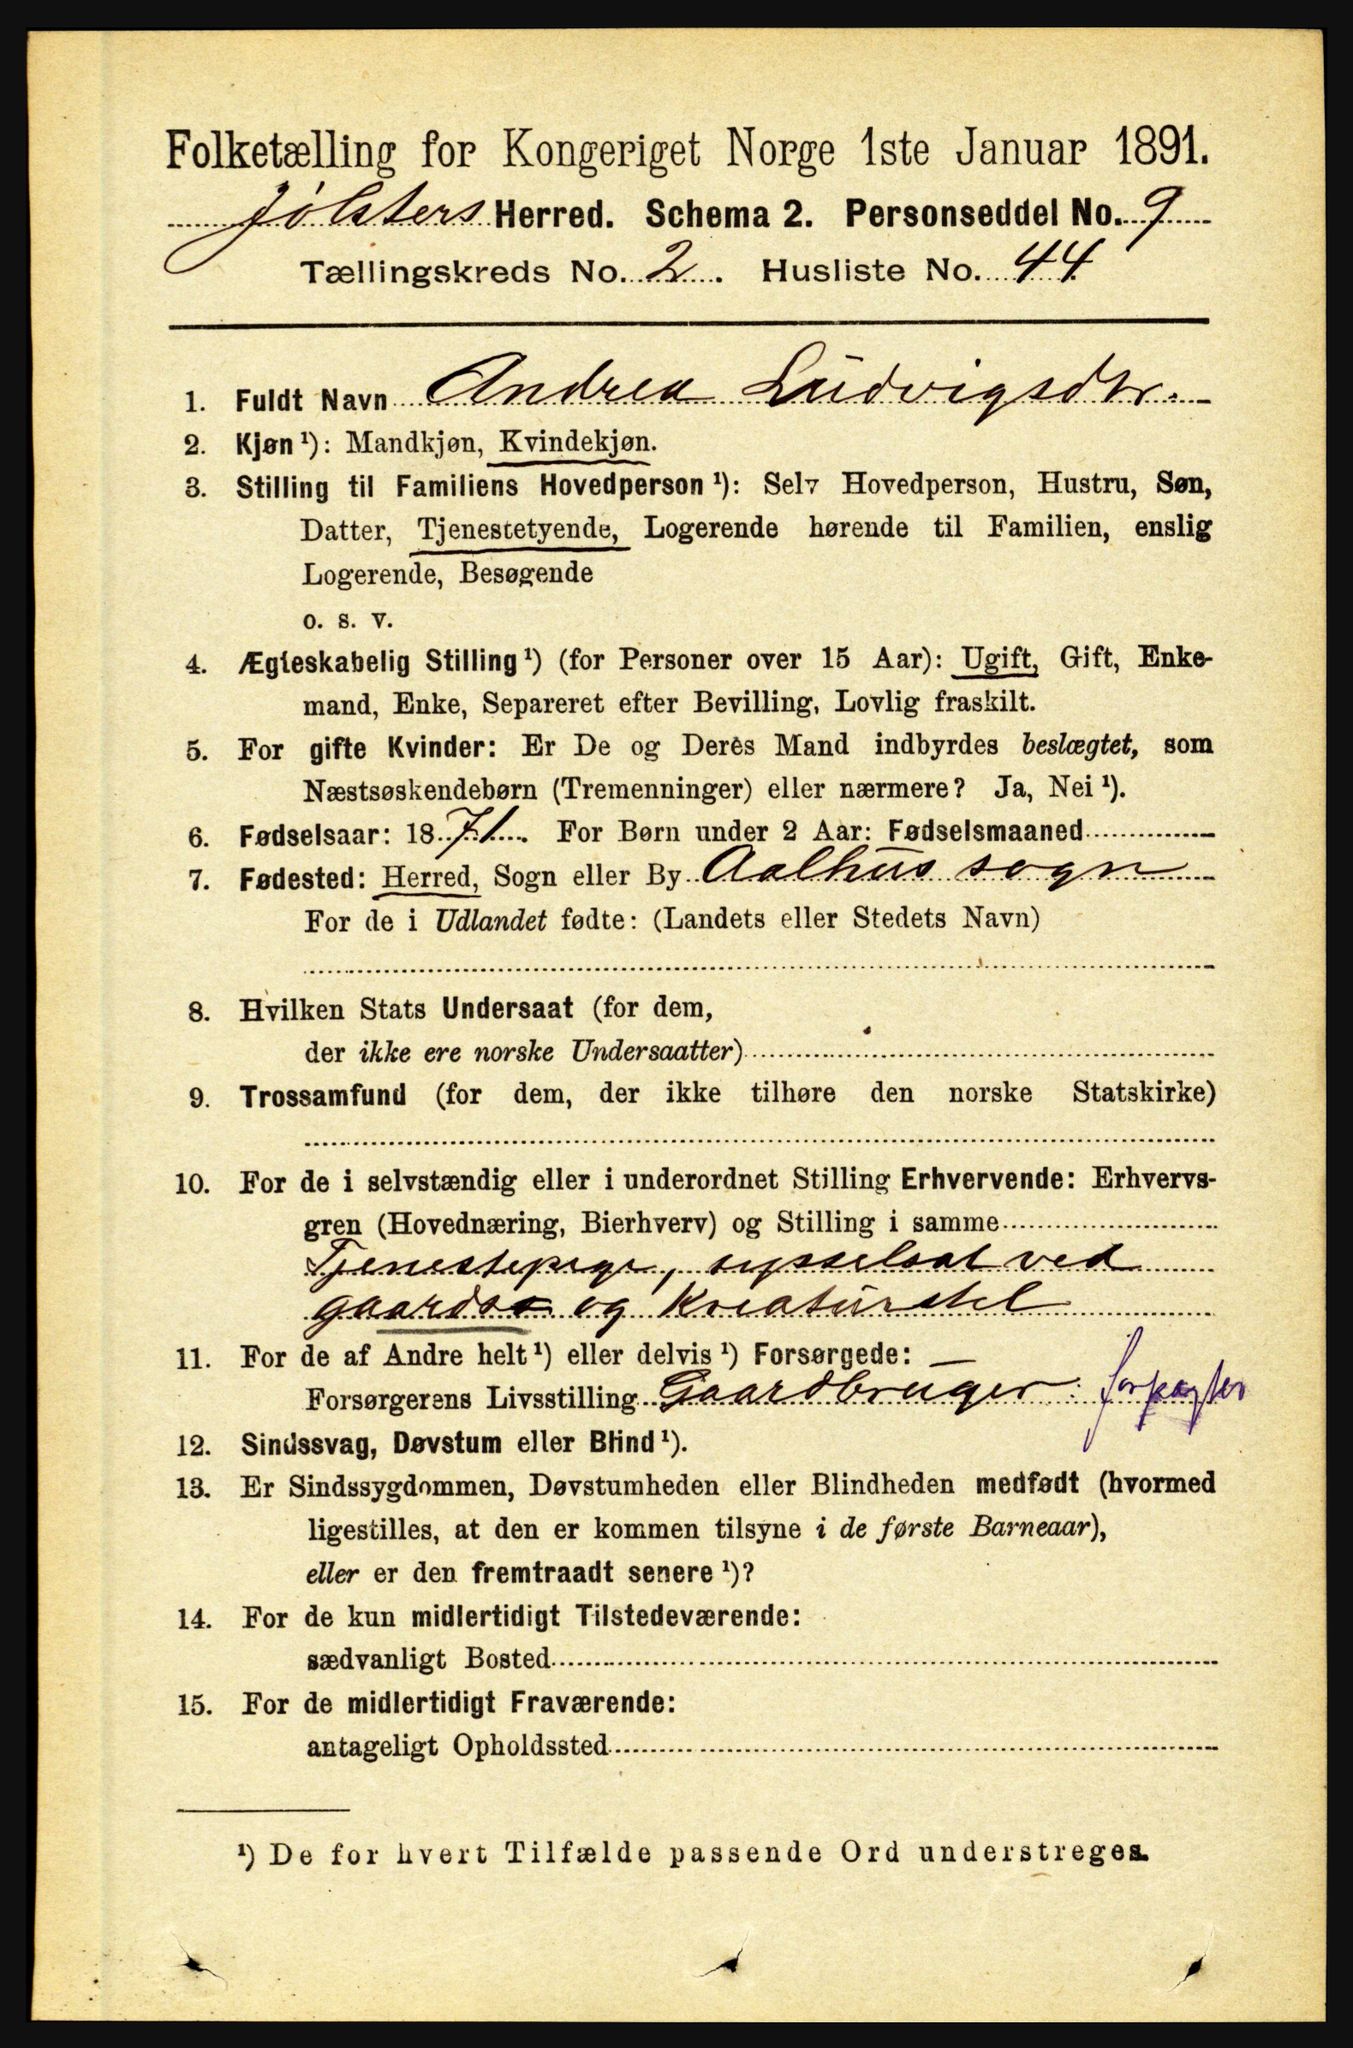 Folketælling for Kongeriget Norge 1ste Januar 1891.
Jølsters Herred. Schema 2. Personseddel No. 9
Tællingskreds No. 2. Husliste No. 44
1. Fuldt Navn Andrea Ludvigsdtr.
2. Kjøn¹): Mandkjøn, Kvindekjøn.
3. Stilling til Familiens Hovedperson¹): Selv Hovedperson, Hustru, Søn,
Datter, Tjenestetyende, Logerende hørende til Familien, enslig
Logerende, Besøgende
o. s. v.
4. Ægteskabelig Stilling¹) (for Personer over 15 Aar): Ugift, Gift, Enke-
mand, Enke, Separeret efter Bevilling, Lovlig fraskilt.
5. For gifte Kvinder: Er De og Deres Mand indbyrdes beslægtet, som
Næstsøskendebørn (Tremenninger) eller nærmere? Ja, Nei¹).
6. Fødselsaar: 1871. For Børn under 2 Aar: Fødselsmaaned
7. Fødested: Herred, Sogn eller By Aalhus sogn
For de i Udlandet fødte: (Landets eller Stedets Navn)
8. Hvilken Stats Undersaat (for dem,
der ikke ere norske Undersaatter)
9. Trossamfund (for dem, der ikke tilhøre den norske Statskirke)
10. For de i selvstændig eller i underordnet Stilling Erhvervende: Erhvervs-
gren (Hovednæring, Bierhverv) og Stilling i samme
Tjenestepige, sysselsat ved
gaards og Kreaturstel
11. For de af Andre helt¹) eller delvis¹) Forsørgede: —
Forsørgerens Livsstilling Gaardbruger. forpagter
12. Sindssvag, Døvstum eller Blind¹).
13. Er Sindssygdommen, Døvstumheden eller Blindheden medfødt (hvormed
ligestilles, at den er kommen tilsyne i de første Barneaar),
eller er den fremtraadt senere¹)?
14. For de kun midlertidigt Tilstedeværende:
sædvanligt Bosted
15. For de midlertidigt Fraværende:
antageligt Opholdssted
¹) De for hvert Tilfælde passende Ord understreges.